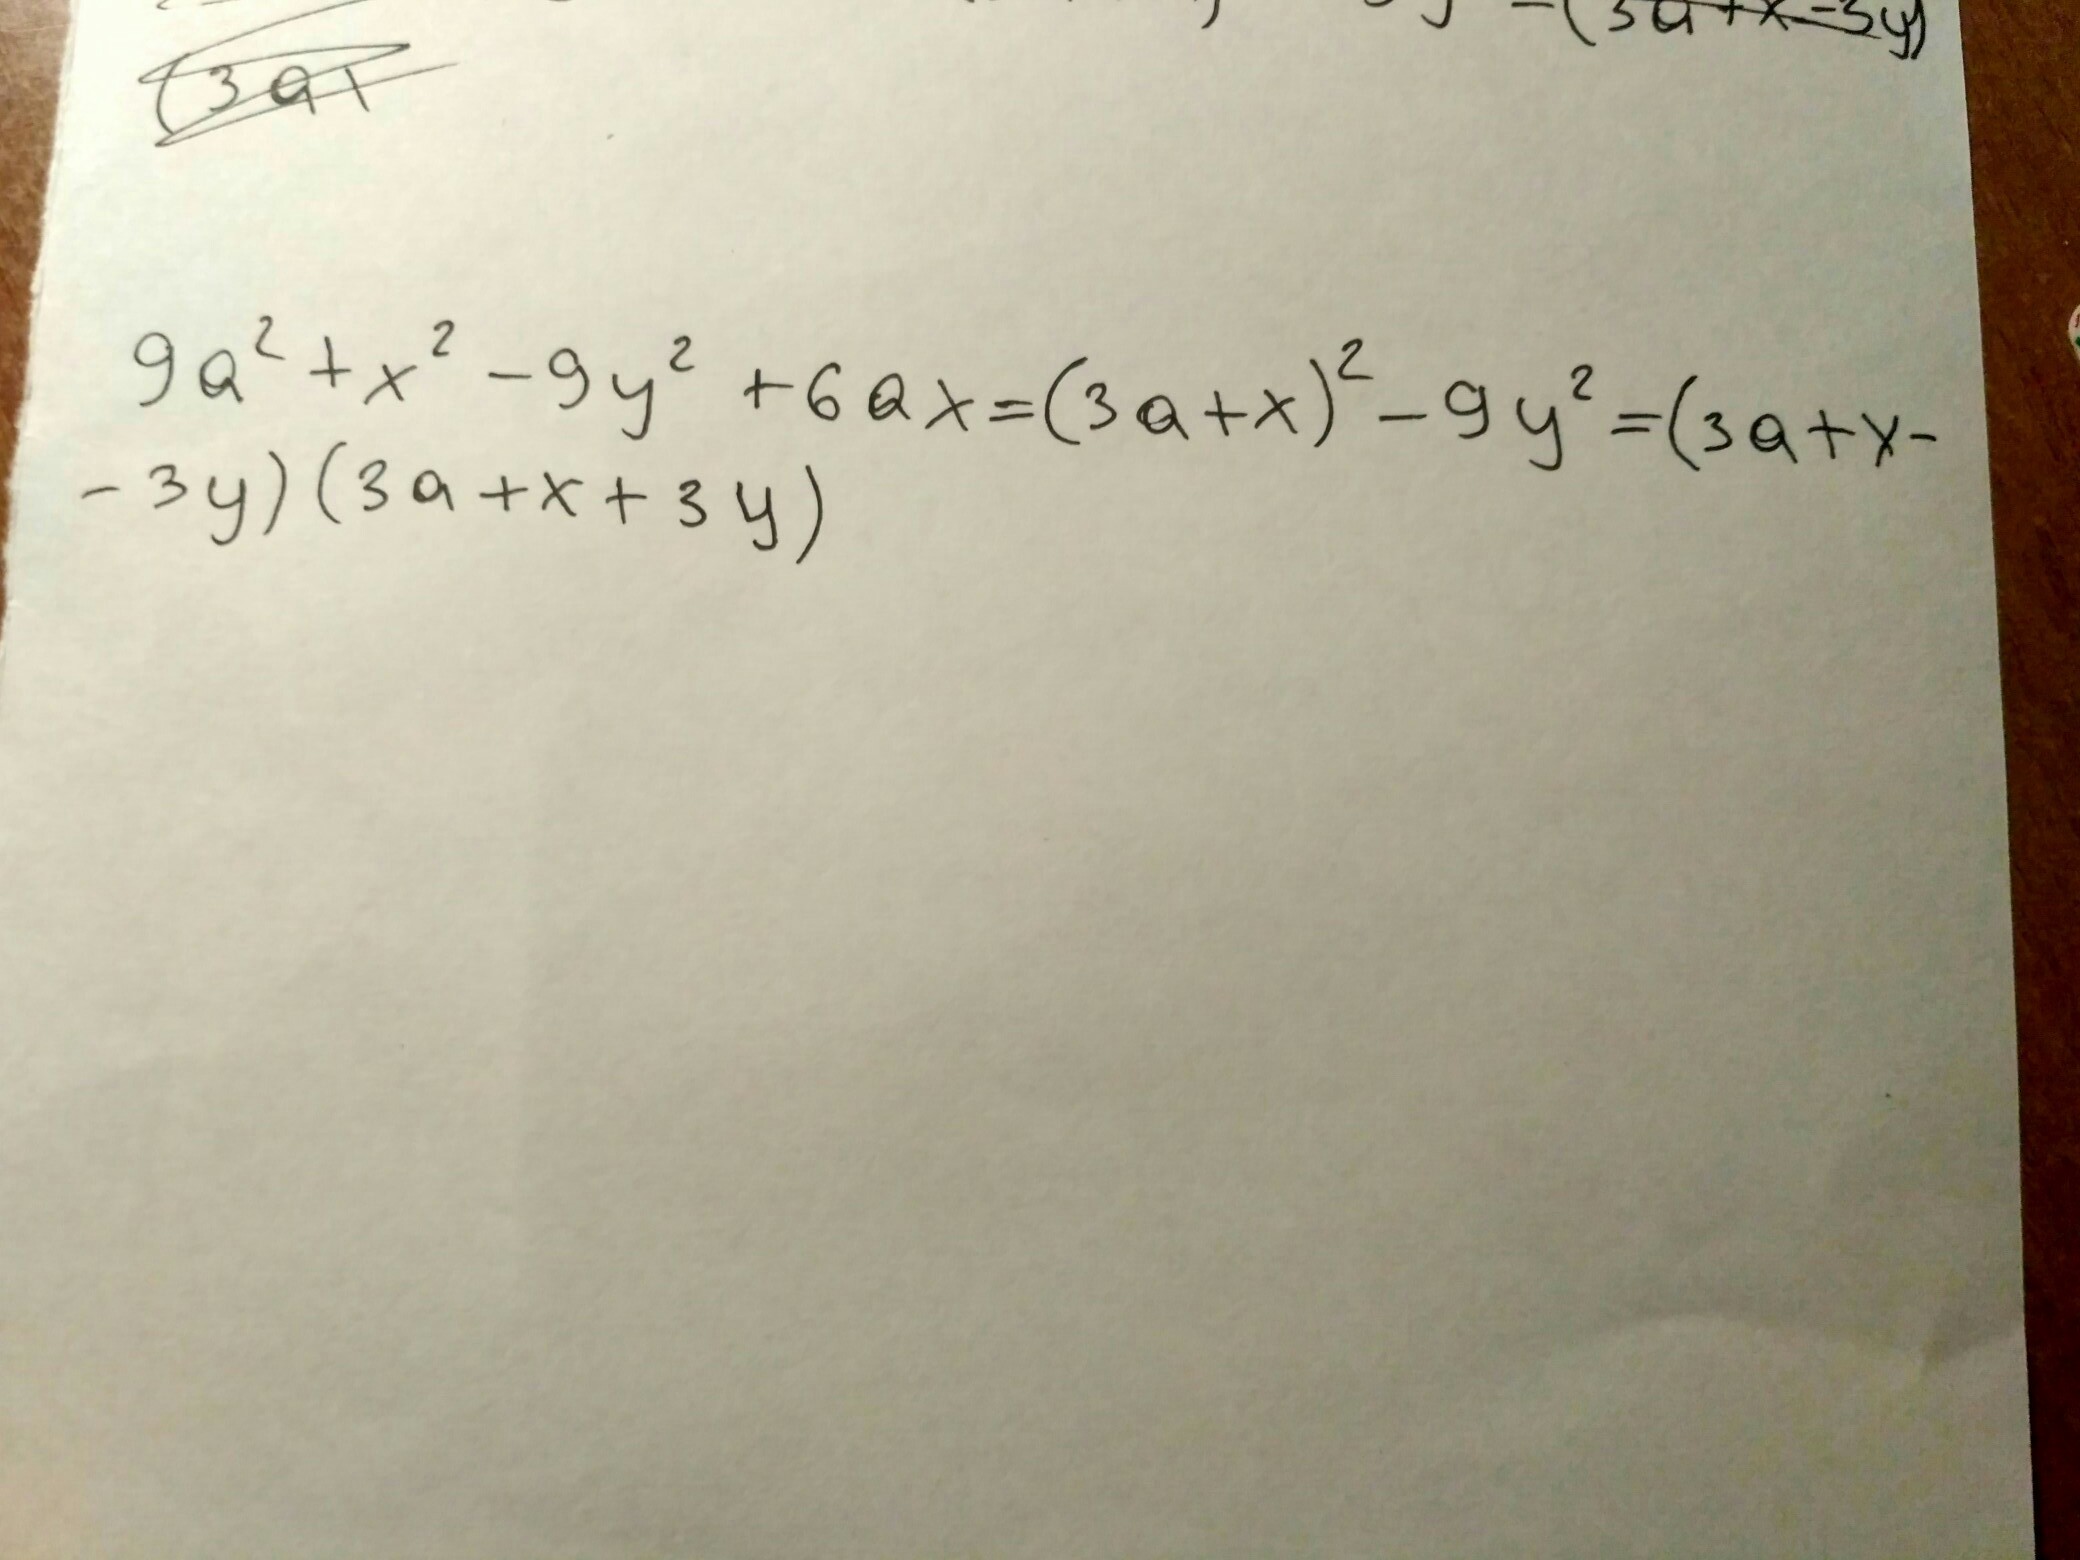 -(3a+x-3y)
(3a+
9a²+x²-9y²+6ax=(3a+x)²-9y²=(3a+x-
-3y)(3a+x+3y)